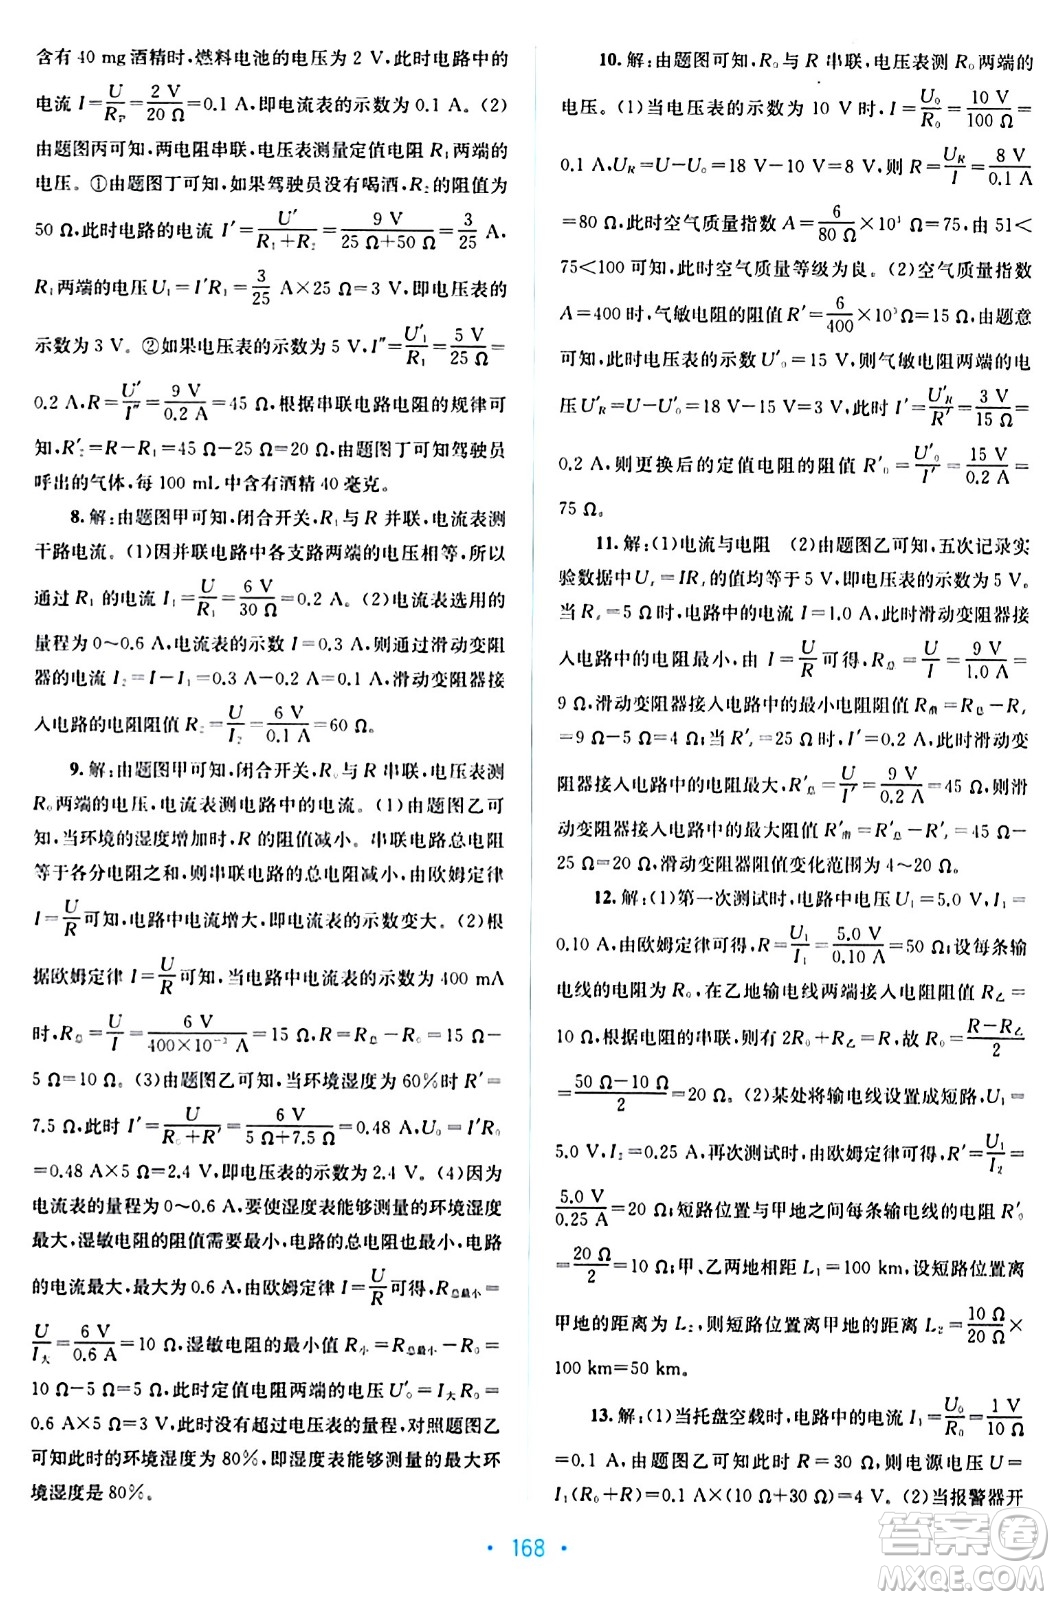 含有 40 mg 酒精时,燃料电池的电压为 2 V,此时电路中的
电流 I=U/R_P=2 V/20 Ω=0.1 A,即电流表的示数为 0.1 A。(2)
由题图丙可知,两电阻串联,电压表测量定值电阻 R₁ 两端的
电压。①由题图丁可知,如果驾驶员没有喝酒,R₂ 的阻值为
50 Ω,此时电路的电流 I′=U′/(R₁+R₂)=9 V/(25 Ω+50 Ω)=3/25 A,
R₁ 两端的电压 U₁=I′R₁=3/25 A×25 Ω=3 V,即电压表的
示数为 3 V。②如果电压表的示数为 5 V,I″=U′₁/R₁=5 V/25 Ω=
0.2 A,R=U′/I″=9 V/0.2 A=45 Ω,根据串联电路电阻的规律可
知,R′₂=R-R₁=45 Ω-25 Ω=20 Ω,由题图丁可知驾驶员
呼出的气体,每 100 mL 中含有酒精 40 毫克。
8. 解:由题图甲可知,闭合开关,R₁ 与 R 并联,电流表测
干路电流。(1)因并联电路中各支路两端的电压相等,所以
通过 R₁ 的电流 I₁=U/R₁=6 V/30 Ω=0.2 A。(2)电流表选用的
量程为 0~0.6 A,电流表的示数 I=0.3 A,则通过滑动变阻
器的电流 I₂=I-I₁=0.3 A-0.2 A=0.1 A,滑动变阻器接
入电路的电阻阻值 R₂=U/I₂=6 V/0.1 A=60 Ω。
9. 解:由题图甲可知,闭合开关,R₀ 与 R 串联,电压表测
R₀ 两端的电压,电流表测电路中的电流。(1)由题图乙可
知,当环境的湿度增加时,R 的阻值减小。串联电路总电阻
等于各分电阻之和,则串联电路的总电阻减小,由欧姆定律
I=U/R 可知,电路中电流增大,即电流表的示数变大。(2)根
据欧姆定律 I=U/R 可知,当电路中电流表的示数为 400 mA
时,R总=U/I=6 V/(400×10⁻³ A)=15 Ω,R=R总-R₀=15 Ω-
5 Ω=10 Ω。(3)由题图乙可知,当环境湿度为 60%时 R′=
7.5 Ω,此时 I′=U/(R₀+R′)=6 V/(5 Ω+7.5 Ω)=0.48 A,U₀=I′R₀
=0.48 A×5 Ω=2.4 V,即电压表的示数为 2.4 V。(4)因为
电流表的量程为 0~0.6 A,要使湿度表能够测量的环境湿度
最大,湿敏电阻的阻值需要最小,电路的总电阻也最小,电路
的电流最大,最大为 0.6 A,由欧姆定律 I=U/R 可得,R总最小=
U/I大=6 V/0.6 A=10 Ω,湿敏电阻的最小值 R小=R总最小-R₀=
10 Ω-5 Ω=5 Ω。此时定值电阻两端的电压 U′₀=I大R₀=
0.6 A×5 Ω=3 V,此时没有超过电压表的量程,对照题图乙
可知此时的环境湿度为 80%,即湿度表能够测量的最大环
境湿度是 80%。
10. 解:由题图可知,R₀ 与 R 串联,电压表测 R₀ 两端的
电压。(1)当电压表的示数为 10 V 时,I=U₀/R₀=10 V/100 Ω=
0.1 A,U_R=U-U₀=18 V-10 V=8 V,则 R=U_R/I=8 V/0.1 A
=80 Ω,此时空气质量指数 A=6/80 Ω×10³ Ω=75,由 51<
75<100 可知,此时空气质量等级为良。(2)空气质量指数
A=400 时,气敏电阻的阻值 R′=6/400×10³ Ω=15 Ω,由题意
可知此时电压表的示数 U′₀=15 V,则气敏电阻两端的电
压 U′_R=U-U′₀=18 V-15 V=3 V,此时 I′=U′_R/R′=3 V/15 Ω=
0.2 A,则更换后的定值电阻的阻值 R′₀=U′₀/I′=15 V/0.2 A=
75 Ω。
11. 解:(1)电流与电阻 (2)由题图乙可知,五次记录实
验数据中 Uₓ=IRₓ 的值均等于 5 V,即电压表的示数为 5 V。
当 Rₓ=5 Ω时,电路中的电流 I=1.0 A,此时滑动变阻器接
入电路中的电阻最小,由 I=U/R 可得,R总=U/I=9 V/1.0 A=
9 Ω,滑动变阻器接入电路中的最小电阻 R滑=R总-Rₓ
=9 Ω-5 Ω=4 Ω;当 R′ₓ=25 Ω时,I′=0.2 A,此时滑动变
阻器接入电路中的电阻最大,R′总=U/I′=9 V/0.2 A=45 Ω,滑
动变阻器接入电路中的最大阻值 R′滑=R′总-R′ₓ=45 Ω-
25 Ω=20 Ω,滑动变阻器阻值变化范围为 4~20 Ω。
12. 解:(1)第一次测试时,电路中电压 U₁=5.0 V,I₁=
0.10 A,由欧姆定律可得,R=U₁/I₁=5.0 V/0.10 A=50 Ω;设每条输
电线的电阻为 R₀,在乙地输电线两端接入电阻阻值 R乙=
10 Ω;根据电阻的串联,则有 2R₀+R乙=R,故 R₀=(R-R乙)/2
=(50 Ω-10 Ω)/2=20 Ω;(2)某处将输电线设置成短路,U₁=
5.0 V,I₂=0.25 A,再次测试时,由欧姆定律可得,R′=U₁/I₂=
5.0 V/0.25 A=20 Ω;短路位置与甲地之间每条输电线的电阻 R′₀
=20 Ω/2=10 Ω;甲、乙两地相距 L₁=100 km,设短路位置离
甲地的距离为 L₂,则短路位置离甲地的距离 L₂=10 Ω/20 Ω×
100 km=50 km。
13. 解:(1)当托盘空载时,电路中的电流 I₁=U₀/R₀=1 V/10 Ω=
0.1 A。由题图乙可知,此时 R=30 Ω,则电源电压 U=
I₁(R₀+R)=0.1 A×(10 Ω+30 Ω)=4 V。(2)当报警器开
· 168 ·
答案圈
MXQE.COM